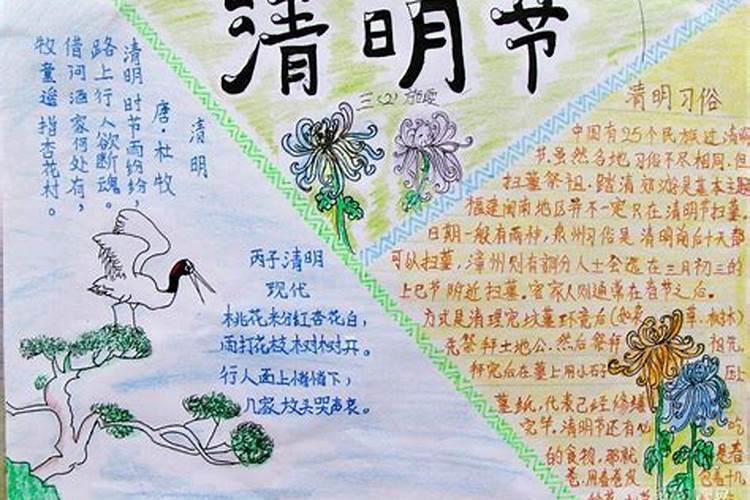 清明节
三(2)
清明
唐·杜牧
清明时节雨纷纷，
路上行人欲断魂。
借问酒家何处有，
牧童遥指杏花村。
丙子清明
现代
桃花粉红杏花白，
雨打花枝树树开。
行人面上下，
几家坟头哭声哀。
清明习俗
中国有25个民族过清明
节，虽然各地习俗不尽相同，但
扫墓祭祖、踏清郊游是基本主题
福建闽南地区并不一定只在清明节扫墓，
日期一般有两种，泉州习俗是清明前后十天都
可以扫墓，漳州则有部分人士会选在三月初三的
上巳节附近扫墓。客家人则通常在春节之后。
方式是清理完坟墓环境后(如杂草、树木)
先祭拜土地公，然后祭拜祖先，
拜完后在墓上用小石压上
墓纸，代表已经修缮
完毕。清明节还有吃
的食物，那就是春
卷，用春卷皮包着